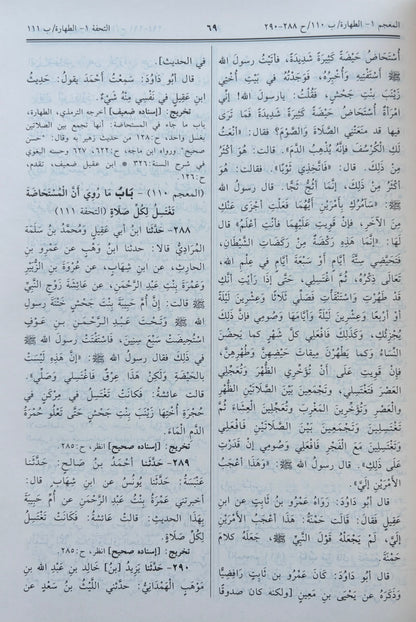 المعجم ١- الطهارة/ب ١١٠/ح ٢٨٨-٢٩٠
٦٩
التحفة ١- الطهارة/ب ١١١
أُسْتَحَاضُ حَيْضَةً كَثِيرَةً شَدِيدَةً، فأَتَيْتُ رسولَ الله
ﷺ أَسْتَفْتِيهِ وَأُخْبِرُهُ، فَوَجَدْتُهُ في بَيْتِ أُخْتِي
زَيْنَبَ بِنْتِ جَحْشٍ، فَقُلْتُ: يارسولَ الله! إِنِّي
امْرَأَةٌ أُسْتَحَاضُ حَيْضَةً كَثِيرَةً شَدِيدَةً، فَمَا تَرَى
فيها قد مَنَعَتْنِي الصَّلَاةَ وَالصَّوْمَ؟ فقال: «أَنْعَتُ
لَكِ الْكُرْسُفَ فَإِنَّهُ يُذْهِبُ الدَّمَ». قالت: هُوَ أَكْثَرُ
مِنْ ذَلِكَ. قال: «فَاتَّخِذِي ثَوْبًا». فقالت: هُوَ
أَكْثَرُ مِنْ ذَلِكَ، إِنَّمَا أَثُجُّ ثَجًّا. قال رسولُ الله
ﷺ: «سَآمُرُكِ بِأَمْرَيْنِ أَيَّهُمَا فَعَلْتِ أَجْزَى عَنْكِ
مِنَ الآخَرِ، فَإِنْ قَوِيتِ عَلَيْهِمَا فَأَنْتِ أَعْلَمُ» قال
لَهَا: «إِنَّمَا هَذِهِ رَكْضَةٌ مِنْ رَكَضَاتِ الشَّيْطَانِ،
فَتَحَيَّضِي سِتَّةَ أَيَّامٍ أَوْ سَبْعَةَ أَيَّامٍ في عِلْمِ الله،
تَعَالَى ذِكْرُهُ، ثُمَّ اغْتَسِلِي، حَتَّى إِذَا رَأَيْتِ أَنَّكِ
قد طَهُرْتِ وَاسْتَنْقَأْتِ فَصَلِّي ثَلَاثًا وعشرِينَ لَيْلَةً
أَوْ أَرْبَعًا وَعِشْرِينَ لَيْلَةً وَأَيَّامَهَا وَصُومِي فَإِنَّ ذَلِكَ
يُجْزِئُكِ، وَكَذَلِكَ فَافْعَلِي كُلَّ شَهْرٍ كما يَحِضْنَ
النِّسَاءُ وَكما يَطْهُرْنَ مِيقَاتَ حَيْضِهِنَّ وَطُهْرِهِنَّ،
فَإِنْ قَوِيتِ عَلَى أَنْ تُؤَخِّرِي الظُّهْرَ وَتُعَجِّلِي
العَصْرَ فَتَغْتَسِلِي، وَتَجْمَعِينَ بَيْنَ الصَّلَاتَيْنِ الظُّهْرِ
والْعَصْرِ وَتُؤَخِّرِينَ المَغْرِبَ وَتُعَجِّلِينَ العِشَاءَ ثُمَّ
تَغْتَسِلِينَ، وَتَجْمَعِينَ بَيْنَ الصَّلَاتَيْنِ فَافْعَلِي
وَتَغْتَسِلِينَ مَعَ الْفَجْرِ فَافْعَلِي وَصُومِي إِنْ قَدَرْتِ
عَلَى ذَلِكِ». قال رسولُ الله ﷺ: «وَهذَا أَعْجَبُ
الأَمْرَيْنِ إِلَيَّ».
قال أبو دَاوُدَ: رَوَاهُ عَمْرُو بنُ ثَابِتٍ عن ابنِ
عَقِيلٍ فقال: قالت حَمْنَةُ: هَذَا أَعْجَبُ الأَمْرَيْنِ
إِلَيَّ، لَمْ يَجْعَلْهُ قَوْلَ النَّبيِّ ﷺ، جَعَلَهُ كَلَامَ
حَمْنَةَ.
قال أبو دَاوُدَ: كَانَ عَمْرُو بن ثَابِتٍ رَافِضِيًّا
وَذَكَرَهُ عن يَحْيَى بنِ مَعِينٍ [ولكنه كان صدوقًا
في الحديث].
قال أبو دَاوُدَ: سَمِعْتُ أَحْمَدَ يقولُ: حَدِيثُ
ابنِ عَقِيلٍ في نَفْسِي مِنْهُ شَيْءٌ.
تخريج: [إسناده ضعيف] أخرجه الترمذي، الطهارة،
باب ما جاء في المستحاضة: أنها تجمع بين الصلاتين
بغسل واحد، ح:١٢٨ من حديث زهير به وقال: "حسن
صحيح" ورواه ابن ماجه، ح:٦٢٢، ٦٢٧ وحسنه البغوي
في شرح السنة:٣٢٦ * ابن عقيل ضعيف، تقدم،
ح:١٢٦.
(المعجم ١١٠) - بَابُ مَا رُوِيَ أَنَّ الْمُسْتَحَاضَةَ
تَغْتَسِلُ لِكُلِّ صَلَاةٍ (التحفة ١١١)
٢٨٨- حَدَّثَنا ابنُ أبي عَقِيلٍ وَمُحمَّدُ بنُ سَلَمَةَ
المُرَادِيُّ قالا: حدثنا ابنُ وَهْبٍ عن عَمْرِو بنِ
الحارثِ، عن ابنِ شِهَابٍ، عن عُرْوَةَ بنِ الزُّبَيْرِ
وَعَمْرَةَ بِنْتِ عَبْدِ الرَّحْمَنِ، عن عَائشةَ زَوْجِ النَّبيِّ
ﷺ قالت: إِنَّ أُمَّ حَبِيبَةَ بِنْتَ جَحْشٍ خَتَنَةَ رسولِ
الله ﷺ وَتَحْتَ عَبْدِ الرَّحْمَنِ بنِ عَوْفٍ
اسْتُحِيضَتْ سَبْعَ سِنِينَ، فَاسْتَفْتَتْ رسولَ الله ﷺ
في ذَلِكَ فقال رسولُ الله ﷺ: «إِنَّ هَذِهِ لَيْسَتْ
بالْحَيْضَةِ وَلَكِنْ هَذَا عِرْقٌ فَاغْتَسِلِي وَصَلِّي».
قالت عائشةُ: فَكَانَتْ تَغْتَسِلُ في مِرْكَنٍ في
حُجْرَةِ أُخْتِهَا زَيْنَبَ بِنْتِ جَحْشٍ حَتَّى تَعْلُوَ حُمْرَةُ
الدَّمِ الْمَاءَ.
تخريج: [إسناده صحيح] انظر، ح:٢٨٥.
٢٨٩- حَدَّثَنا أَحْمَدُ بنُ صَالحٍ: حَدَّثَنَا
عَنْبَسَةُ: حَدَّثَنا يُونُسُ عن ابنِ شِهَابٍ قال:
أخبرتني عَمْرَةُ بِنْتُ عَبْدِ الرَّحْمَنِ عن أُمِّ حَبِيبَةَ
بِهَذَا الحديثِ: قالت عائشةُ: فَكَانَتْ تَغْتَسِلُ
لِكُلِّ صَلَاةٍ.
تخريج: [إسناده صحيح] انظر، ح:٢٨٥.
٢٩٠- حَدَّثَنا يَزِيدُ [بنُ] خَالِدِ بنِ عَبْدِ الله بنِ
مَوْهَبٍ الْهَمْدَانِيُّ: حدثني اللَّيْثُ بنُ سَعْدٍ عن